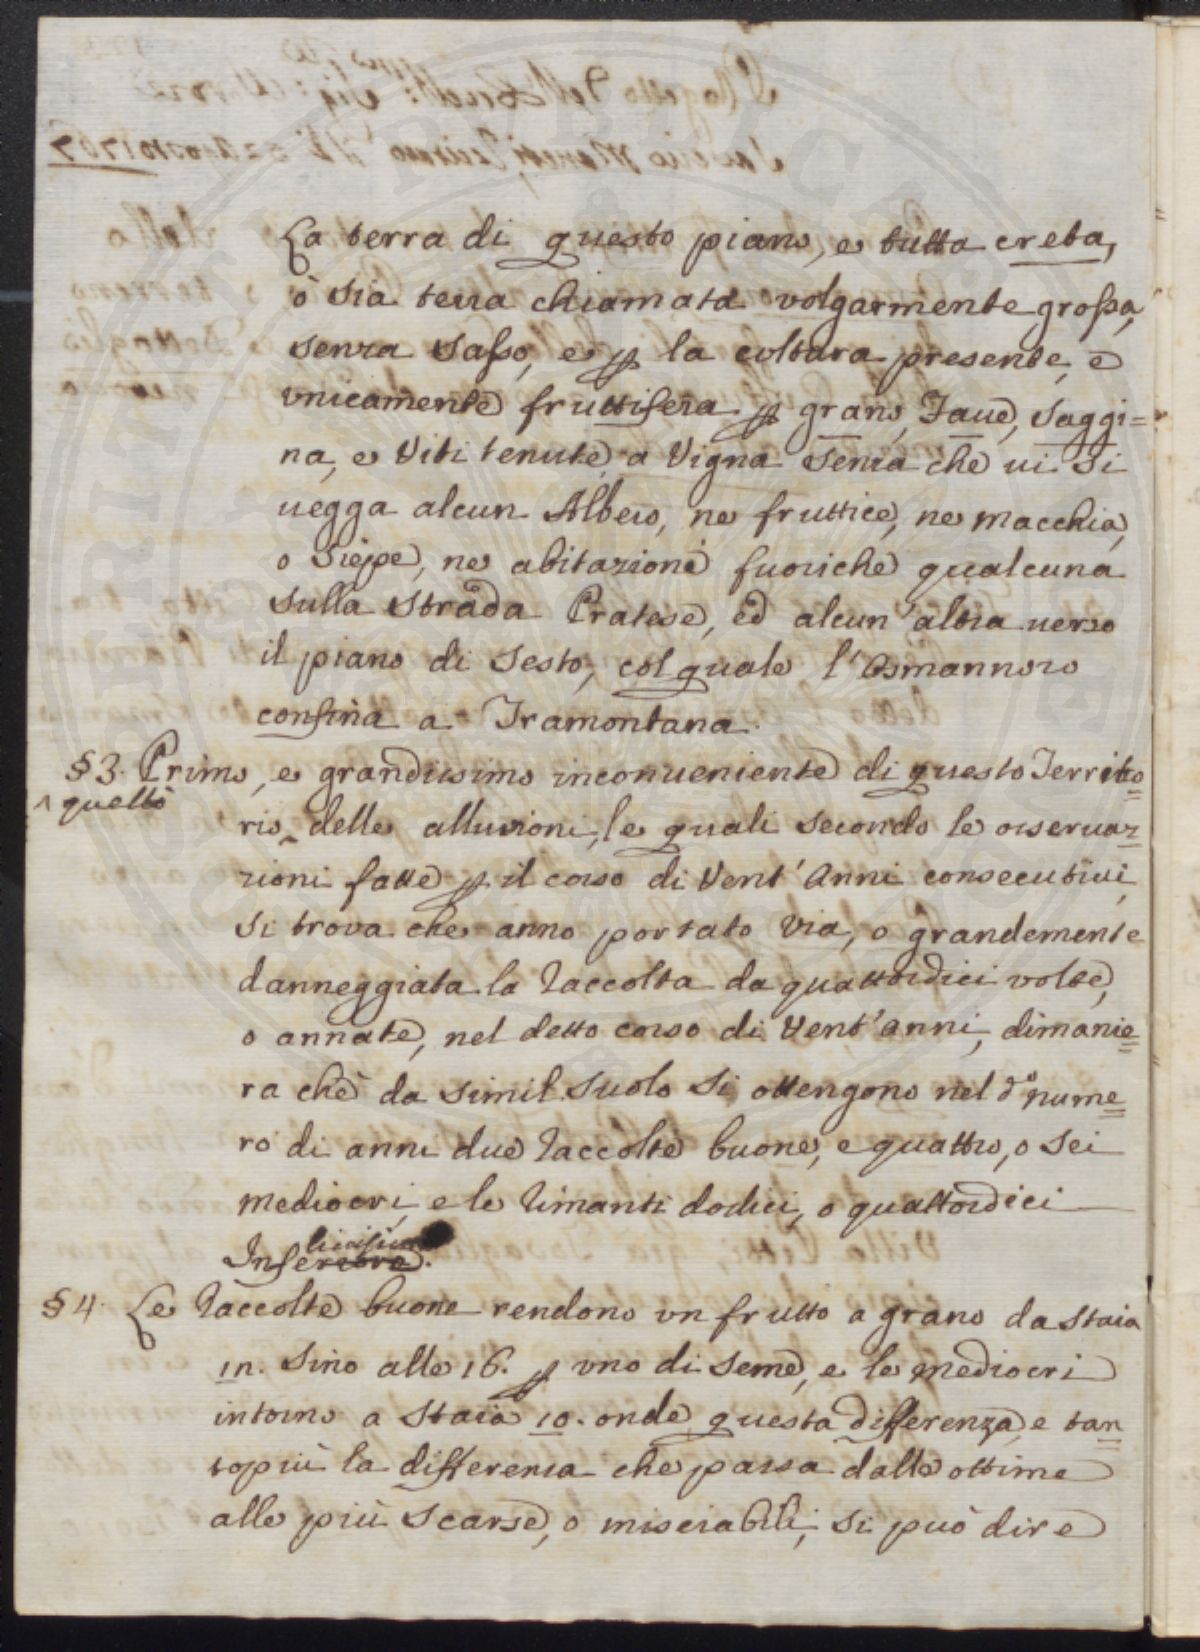 La terra di questo piano, e tutta creta,
ò sia terra chiamata volgarmente grossa,
senza sasso, e p la coltura presente, è
vnicamente fruttifera p grano, Faue, saggi=
na, e Viti tenute a Vigna senza che ui si
uegga alcun Albero, ne fruttice, ne macchia,
o siepe, ne abitazioni fuoriche qualcuna
sulla strada Pratese, ed alcun'altra uerso
il piano di Sesto, col quale l'Osmannoro
confina a Tramontana.
§3. Primo, e grandissimo inconueniente di questo Territo=
^ quello
rio ^ delle alluuioni, le quali secondo le osseruaz=
zioni fatte p il corso di Vent'Anni consecutiui,
si troua che anno portato via, o grandemente
danneggiata la raccolta da quattordici volte,
o annate, nel detto corso di Vent'anni, dimanie=
ra che da simil suolo si ottengono nel do nume=
ro di anni due raccolte buone, e quattro, o sei
mediocri, e le rimanti dodici, o quattordici
Infe
§4. Le raccolte buone rendono vn frutto a grano da staia
in. sino alle 16. p vno di seme, e le mediocri
intorno a staia 10. onde questa differenza, e tan=
topiù la differenza che passa dalle ottime
alle più scarse, o miserabili, si può dire